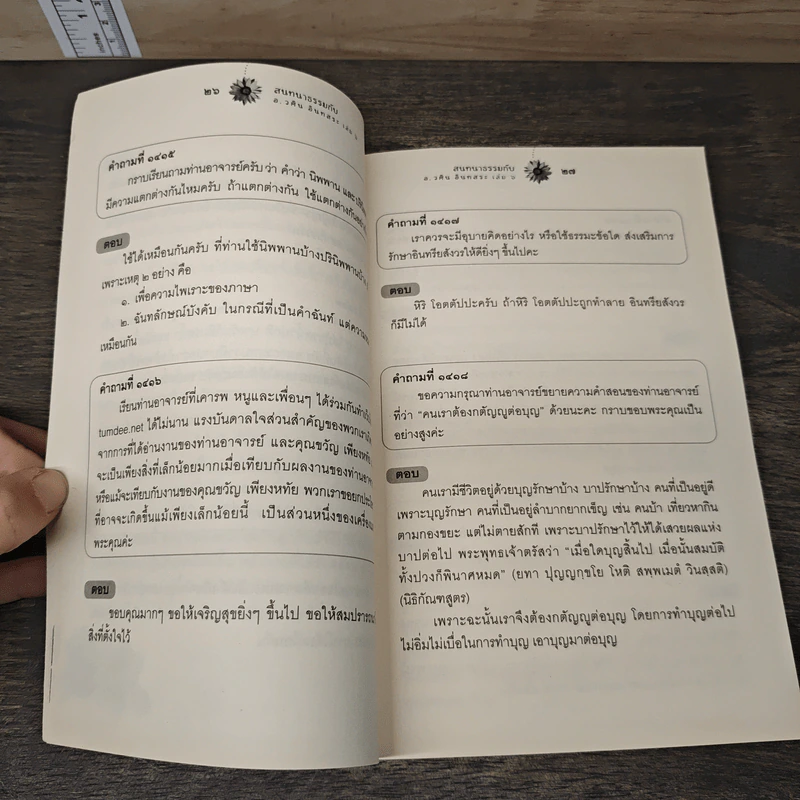 ๒๖
สนทนาธรรมกับ
อ.วศิน อินทสระ เล่ม ๖
คำถามที่ ๑๔๑๕
กราบเรียนถามท่านอาจารย์ครับ ว่า คำว่า นิพพาน และ
มีความแตกต่างกันไหมครับ ถ้าแตกต่างกัน ใช้แตกต่างกัน
ตอบ
ใช้ได้เหมือนกันครับ ที่ท่านใช้นิพพานบ้างปรินิพพานบ้าง
เพราะเหตุ ๒ อย่าง คือ
๑. เพื่อความไพเราะของภาษา
๒. ฉันทลักษณ์บังคับ ในกรณีที่เป็นคำฉันท์ แต่ความ
เหมือนกัน
คำถามที่ ๑๔๑๖
เรียนท่านอาจารย์ที่เคารพ หนูและเพื่อนๆ ได้ร่วมกันทำ
tumdee.net ได้ไม่นาน แรงบันดาลใจส่วนสำคัญของพวกเรา
จากการที่ได้อ่านงานของท่านอาจารย์ และคุณขวัญ เพียงหทัย
จะเป็นเพียงสิ่งที่เล็กน้อยมากเมื่อเทียบกับผลงานของท่าน
หรือแม้จะเทียบกับงานของคุณขวัญ เพียงหทัย พวกเราขอยก
ที่อาจจะเกิดขึ้นแม้เพียงเล็กน้อยนี้ เป็นส่วนหนึ่งของ
พระคุณค่ะ
ตอบ
ขอบคุณมากๆ ขอให้เจริญสุขยิ่งๆ ขึ้นไป ขอให้สมปรารถนา
สิ่งที่ตั้งใจไว้
สนทนาธรรมกับ
อ.วศิน อินทสระ เล่ม ๖
๒๗
คำถามที่ ๑๔๑๗
เราควรจะมีอุบายคิดอย่างไร หรือใช้ธรรมะข้อใด ส่งเสริมการ
รักษาอินทรียสังวรให้ดียิ่งๆ ขึ้นไปคะ
ตอบ
หิริ โอตตัปปะครับ ถ้าหิริ โอตตัปปะถูกทำลาย อินทรียสังวร
ก็มีไม่ได้
คำถามที่ ๑๔๑๘
ขอความกรุณาท่านอาจารย์ขยายความคำสอนของท่านอาจารย์
ที่ว่า “คนเราต้องกตัญญูต่อบุญ” ด้วยนะคะ กราบขอบพระคุณเป็น
อย่างสูงค่ะ
ตอบ
คนเรามีชีวิตอยู่ด้วยบุญรักษาบ้าง บาปรักษาบ้าง คนที่เป็นอยู่ดี
เพราะบุญรักษา คนที่เป็นอยู่ลำบากยากเข็ญ เช่น คนบ้า เที่ยวหากิน
ตามกองขยะ แต่ไม่ตายสักที เพราะบาปรักษาไว้ให้ได้เสวยผลแห่ง
บาปต่อไป พระพุทธเจ้าตรัสว่า “เมื่อใดบุญสิ้นไป เมื่อนั้นสมบัติ
ทั้งปวงก็พินาศหมด” (ยทา ปุญฺญกฺขโย โหติ สพฺพเมตํ วินสฺสติ)
(นิธิกัณฑสูตร)
เพราะฉะนั้นเราจึงต้องกตัญญูต่อบุญ โดยการทำบุญต่อไป
ไม่อิ่มไม่เบื่อในการทำบุญ เอาบุญมาต่อบุญ